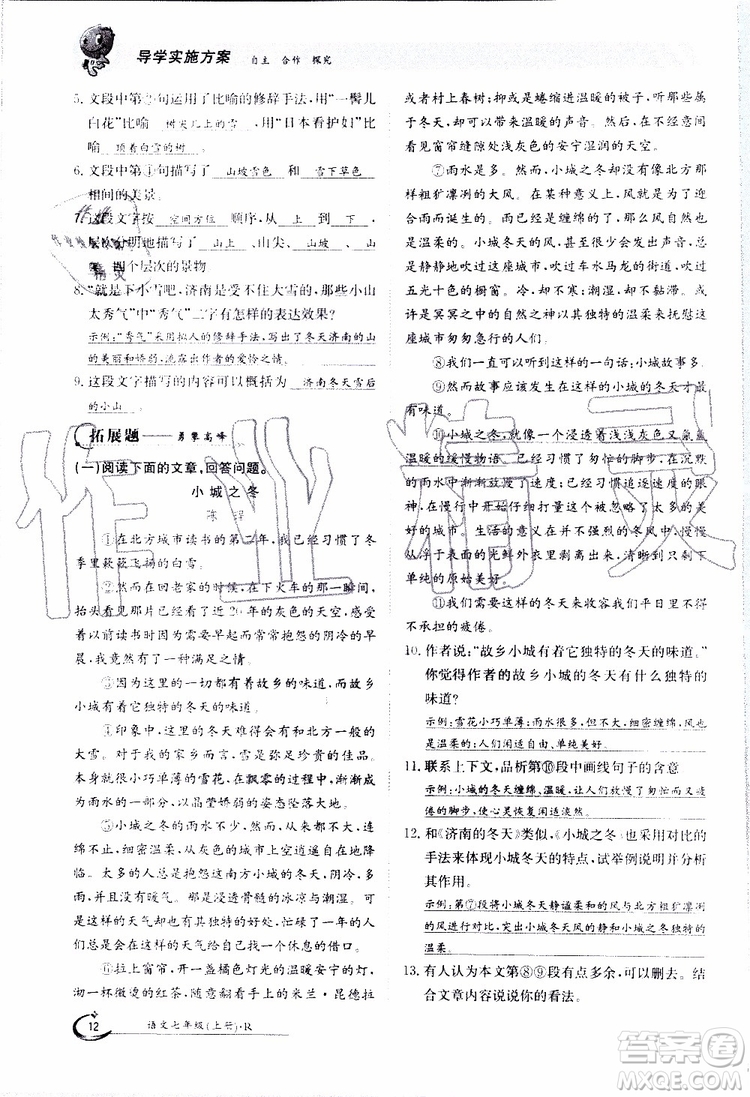 导学实施方案 自主 合作 探究
5. 文段中第②句运用了比喻的修辞手法,用“一髻儿
白花”比喻 树尖儿上的雪 ,用“日本看护妇”比
喻 顶着白雪的树 。
6. 文段中第④句描写了 山坡雪色 和 雪下草色
相间的美景。
7. 这段文字按 空间方位 顺序,从 上 到 下 ,
层次分明地描写了 山上 、山尖、 山坡 、 山
四个层次的景物
8. “就是下小雪吧,济南是受不住大雪的,那些小山
太秀气”中“秀气”二字有怎样的表达效果?
示例:“秀气”采用拟人的修辞手法,写出了冬天济南的山
的美丽和娇弱,流露出作者的爱怜之情。
9. 这段文字描写的内容可以概括为 济南冬天雪后
的小山 。
拓展题——勇攀高峰
(一)阅读下面的文章,回答问题。
小城之冬
陈
①在北方城市读书的第二年,我已经习惯了冬
季里簌簌飞扬的白雪。
②然而在回老家的时候,在下火车的那一瞬间,
抬头看见那片已经看了近20年的灰色的天空,感觉
到以前读书时因为早起而常常抱怨的阴冷的早
晨,竟对这座小城萌生出满足之情。
③因为这里的一切都有故乡的味道,而故乡的
小城有着它独特的冬天的味道。
④印象中,这里的冬天难得会有和北方一般的
大雪。而对于我的家乡而言,雪亦是弥足珍贵的佳品。
本身就很小巧单薄的雪花,在飘零的过程中,渐渐成
了细小的一部分,以晶莹娇弱的姿态坠落在大地。
⑤小城的冬天,雪下得很少,雨水却不太少。
阴冷的天气,灰色的城市上空逍遥着,渐渐地、渐渐地降
临。太多的人抱怨这南方小城冬天的雨,没有北方
雪的洁白,有的是浸透骨髓的冰凉与潮湿。可是这
样的天气却有其独特的好处,忙碌了一年的人
们总是会在这样的天气给自己找一个休息的借口。
⑥拉上窗帘,开一盏橘色灯光的温暖安宁的灯,
沏一杯微烫的红茶,随意地看手上的米兰·昆德拉
或者村上春树;抑或是蜷缩进温暖的被子,听听这属
于冬天,却又能带来温暖的声音。从房间里能依稀
看见窗帘缝隙处浅灰色的安宁与美好。
⑦雨水是多,然而,小城的冬天却没有像北方那
样粗犷凛冽的大风。在某种意义上,风是为了迎
合雨而诞生的。雨已然是缠绵的了,风自然也应该
是温柔的。小城冬天的风,没有声响,没有动态,总
是静静地吹过这座城市,吹过车水马龙的街道,吹过
五光十色的橱窗。冷,却不寒;潮湿,却不黏滞。或
许是冥冥之中它以其独特的温柔来抚慰过这
座城市匆匆急行的人们。
⑧我们一直可以听到这样的一句话:小城故事多。
⑨然而故事应该发生在小城的冬天,才越发的
有味道。
⑩小城之冬,就像一个浸透着浅浅灰色又带着
温暖的缓慢物语。我已经习惯了,感受到它在沉默
的天空下缓慢的脚步。我已经习惯追逐速度的眼
神,终于慢慢开始仔细打量这个被忽略了太多的美
好的城市。生活的意义在并不强烈的冬风中,慢慢
从浮于表面的光鲜外衣里剥离开来,回归到最
单纯的原始美好。
⑪我们需要这样一个冬天,来释放平日里不可
不承担的疲倦。
10. 作者说:“故乡小城有着它独特的冬天的味道。”
你觉得作者的故乡小城的冬天有什么独特的
味道?
示例:雪花小巧单薄;雨水很多,但不大,细密缠绵,风也
是温柔的;人们闲适自由、单纯美好。
11. 联系上下文,品析第⑩段中画线句子的含意
示例:小城的冬天缠绵、温暖,让人们放慢了忙碌而又疲
倦的脚步,使心灵恢复闲适淡然。
12. 和《济南的冬天》类似,《小城之冬》也采用对比的
手法来体现小城冬天的特点,试举例说明并分析
其作用。
示例:第⑦段将小城冬天静谧柔和的风与北方粗犷凛冽
的风进行对比,突出了小城冬天的风以其独特的静谧和
温柔。
13. 有人认为本文第⑧⑨段有点多余,可以删去。结
合文章内容说说你的看法。
12 语文七年级(上册)·R
作业精灵
答案圈
MXQE.COM